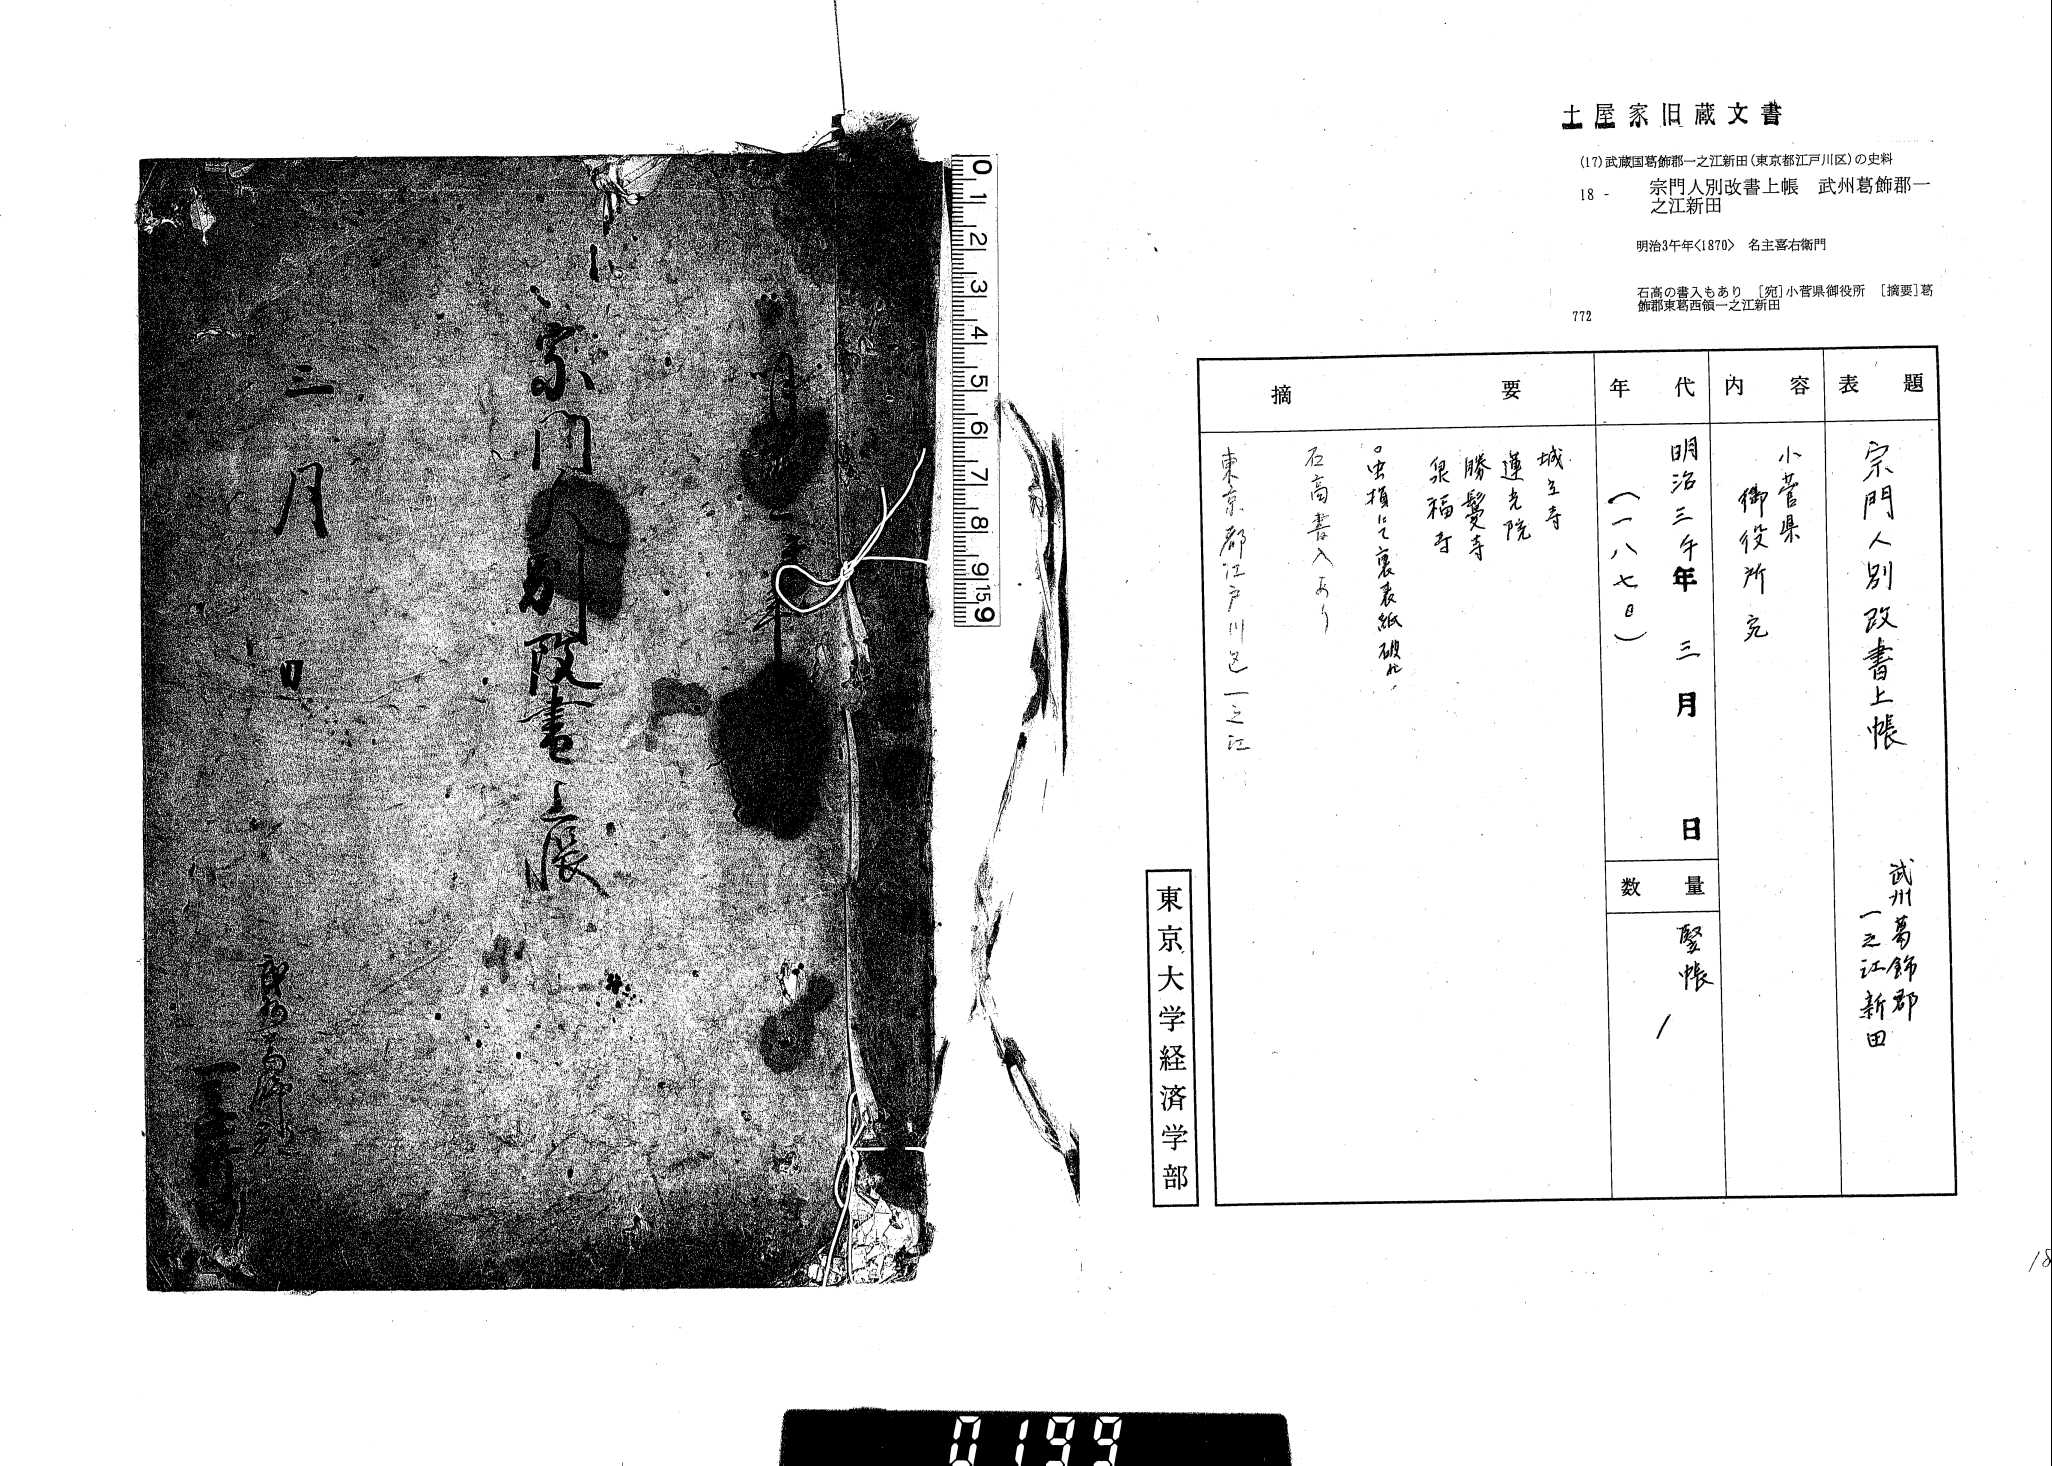 土屋家旧蔵文書
(17)武蔵国葛飾郡一之江新田(東京都江戸川区)の史料
18 -
宗門人別改書上帳 武州葛飾郡一
之江新田
明治3午年<1870> 名主喜右衛門
石高の書入もあり [宛]小菅県御役所 [摘要]葛
飾郡東葛西領一之江新田
772
表題
宗門人別改書上帳
武州葛飾郡
一之江新田
内容
小菅県
御役所宛
年代
明治三午年 三月 日
(一八七〇)
数量
竪帳
/
摘要
城立寺
蓮光院
勝鬘寺
泉福寺
○虫損にて裏表紙破れ、
石高書入あり
東京都江戸川区一之江
東京大学経済学部
18
宗門人別改書上帳
三月 日
武州葛飾郡
0 1 2 3 4 5 6 7 8 9 15 9
0199